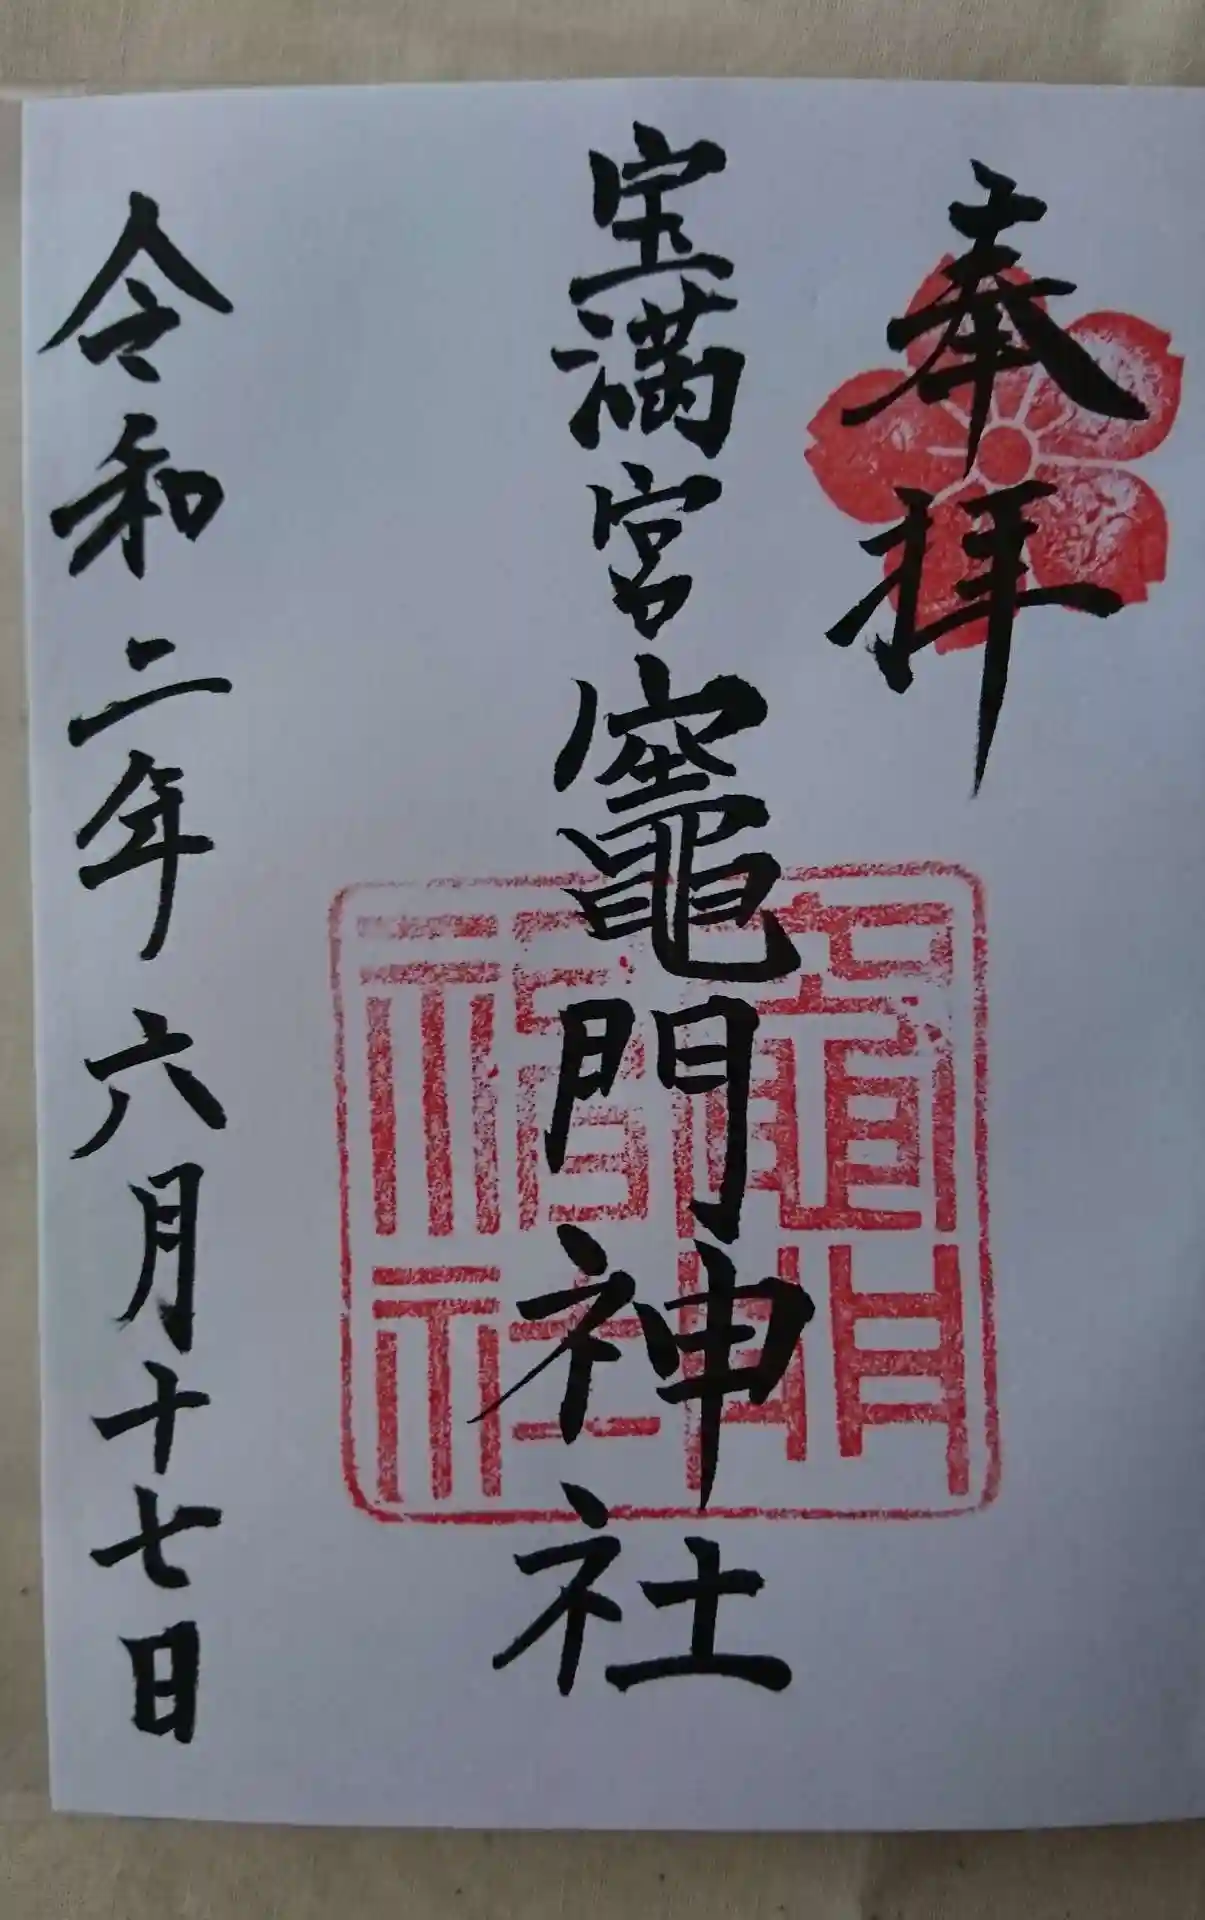 奉拝
宝満宮竈門神社
令和二年六月十七日